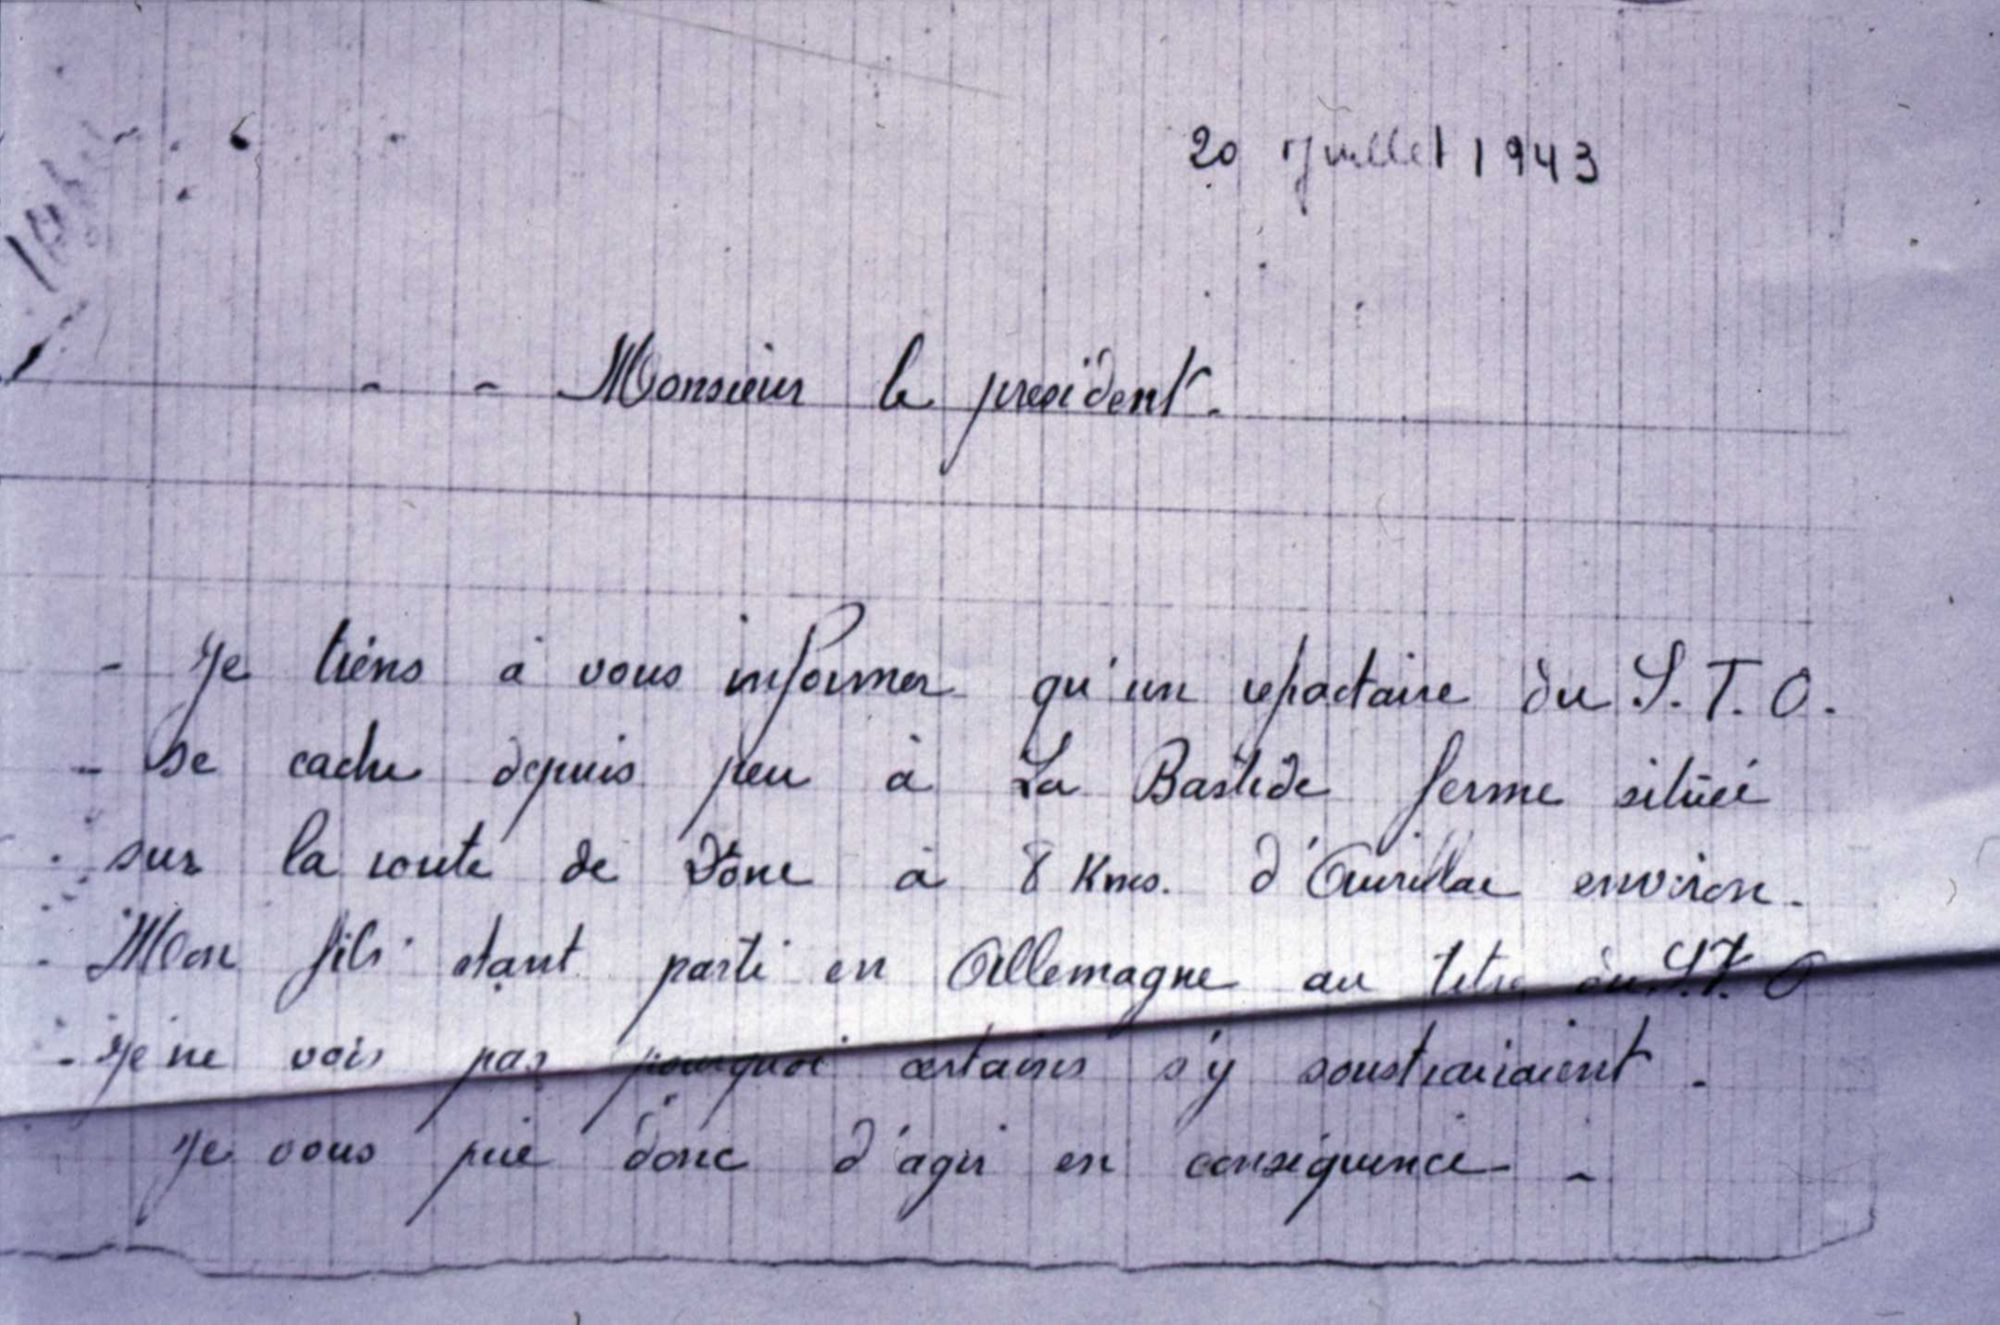 20 Juillet 1943
Monsieur le president.
- Je tiens à vous informer qu'un refractaire du S.T.O.
- se cache depuis peu à La Bastide ferme située
sur la route de à 8 Kms. d'Aurillac environ.
Mon fils étant parti en Allemagne au titre du S.T.O
- je ne vois pas pourquoi certains s'y soustrairaient.
Je vous prie donc d'agir en conséquence -